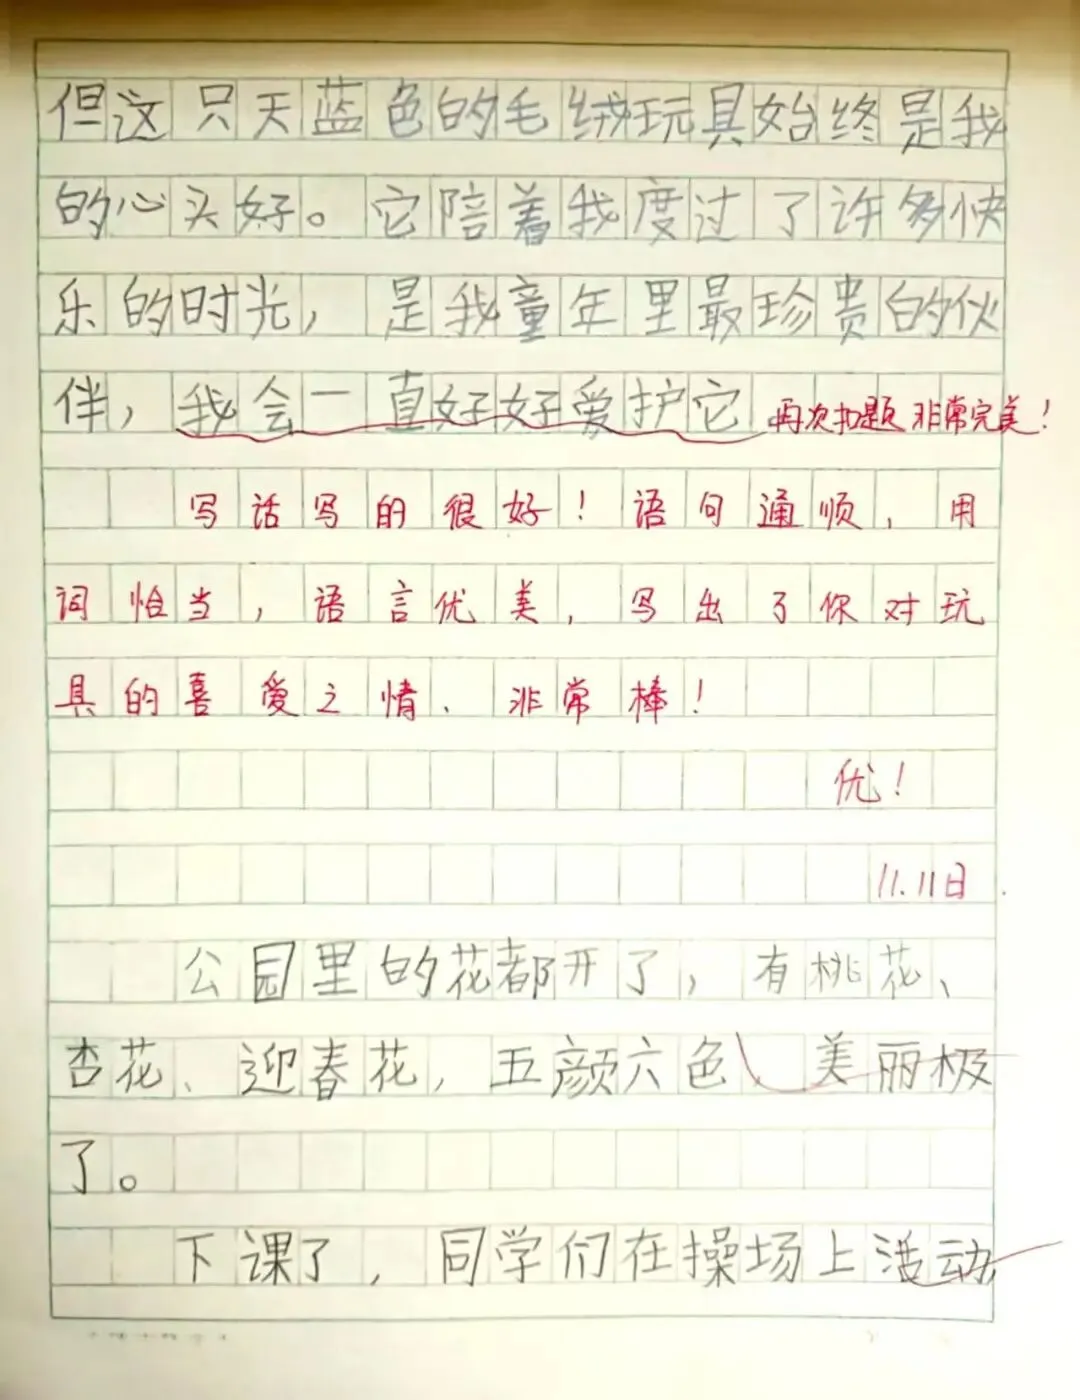 但这只天蓝色的毛绒玩具始终是我
的心头好。它陪着我度过了许多快
乐的时光，是我童年里最珍贵的伙
伴，我会一直好好爱护它 再次扣题 非常完美！
写话写的很好！语句通顺，用
词恰当，语言优美，写出了你对玩
具的喜爱之情、非常棒！
优！
11.11日
公园里的花都开了，有桃花、
杏花、迎春花，五颜六色、美丽极
了。
下课了，同学们在操场上活动